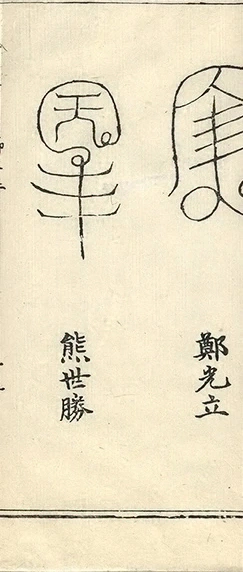 鄭光立
熊世勝